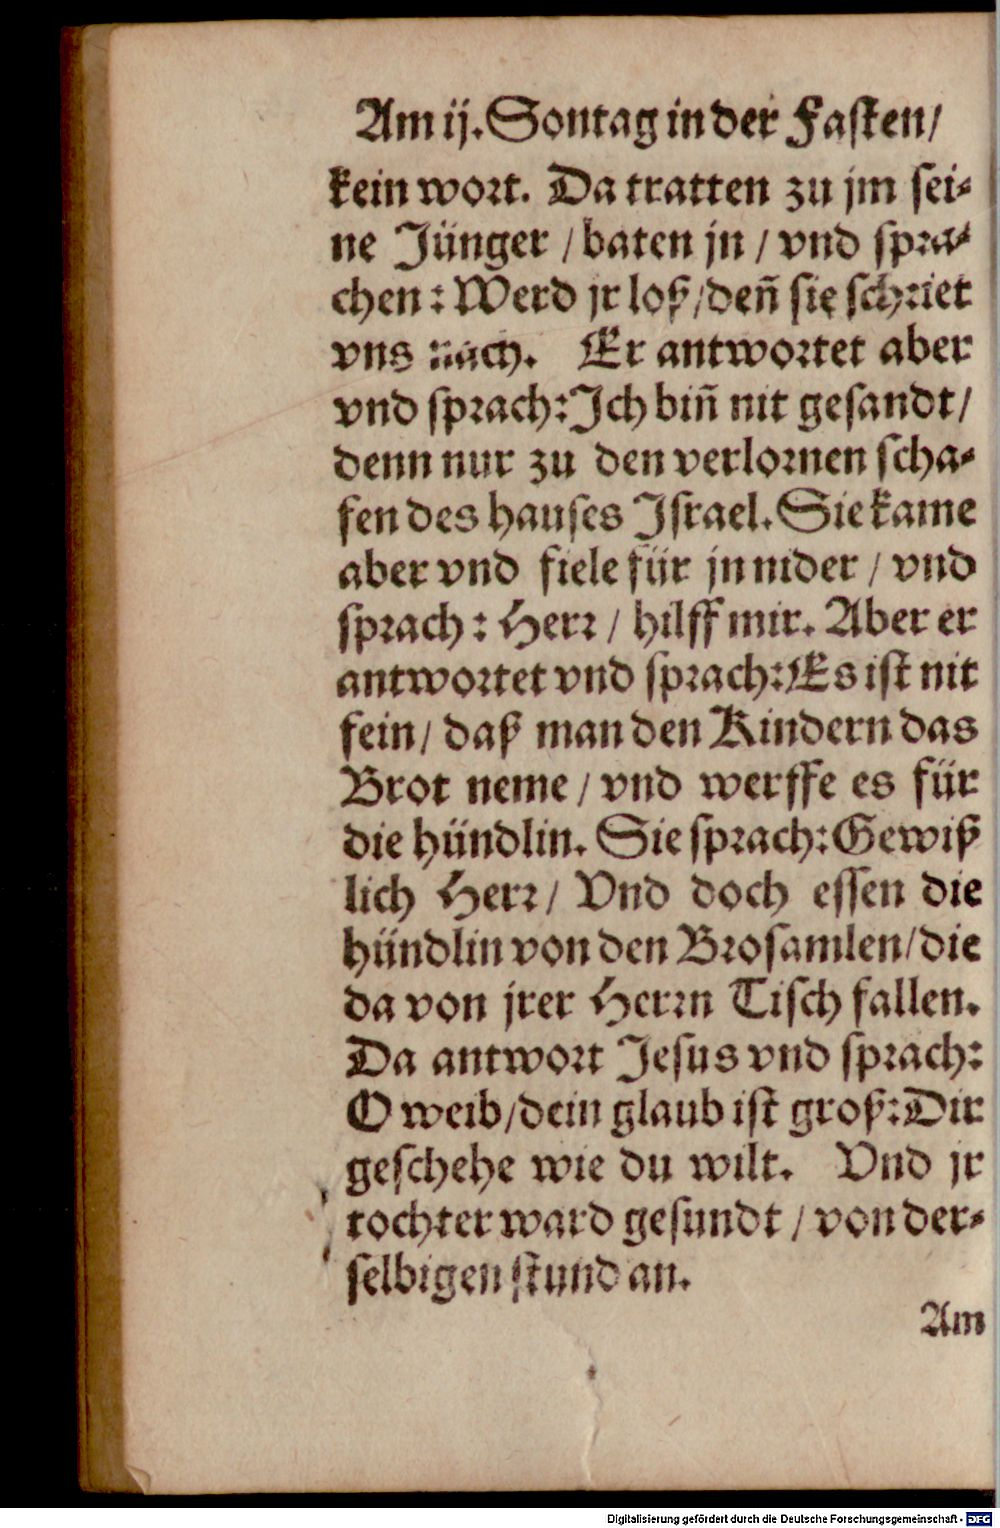 Am ij. Sontag in der Fasten/
kein wort. Da tratten zu jm sei-
ne Jünger / baten jn / vnd spra-
chen: Werd jr loß/deñ sie schriet
vns nach. Er antwortet aber
vnd sprach: Ich biñ nit gesandt/
denn nur zu den verlornen scha-
fen des hauses Israel. Sie kame
aber vnd fiele für jn nider / vnd
sprach: Herr / hilff mir. Aber er
antwortet vnd sprach: Es ist nit
fein/ daß man den Kindern das
Brot neme / vnd werffe es für
die hündlin. Sie sprach: Gewiß
lich Herr/ Vnd doch essen die
hündlin von den Brosamlen/die
da von jrer Herrn Tisch fallen.
Da antwort Jesus vnd sprach:
O weib/dein glaub ist groß: Dir
geschehe wie du wilt. Vnd jr
tochter ward gesundt / von der-
selbigen stund an.
Am
Digitalisierung gefördert durch die Deutsche Forschungsgemeinschaft - DFG